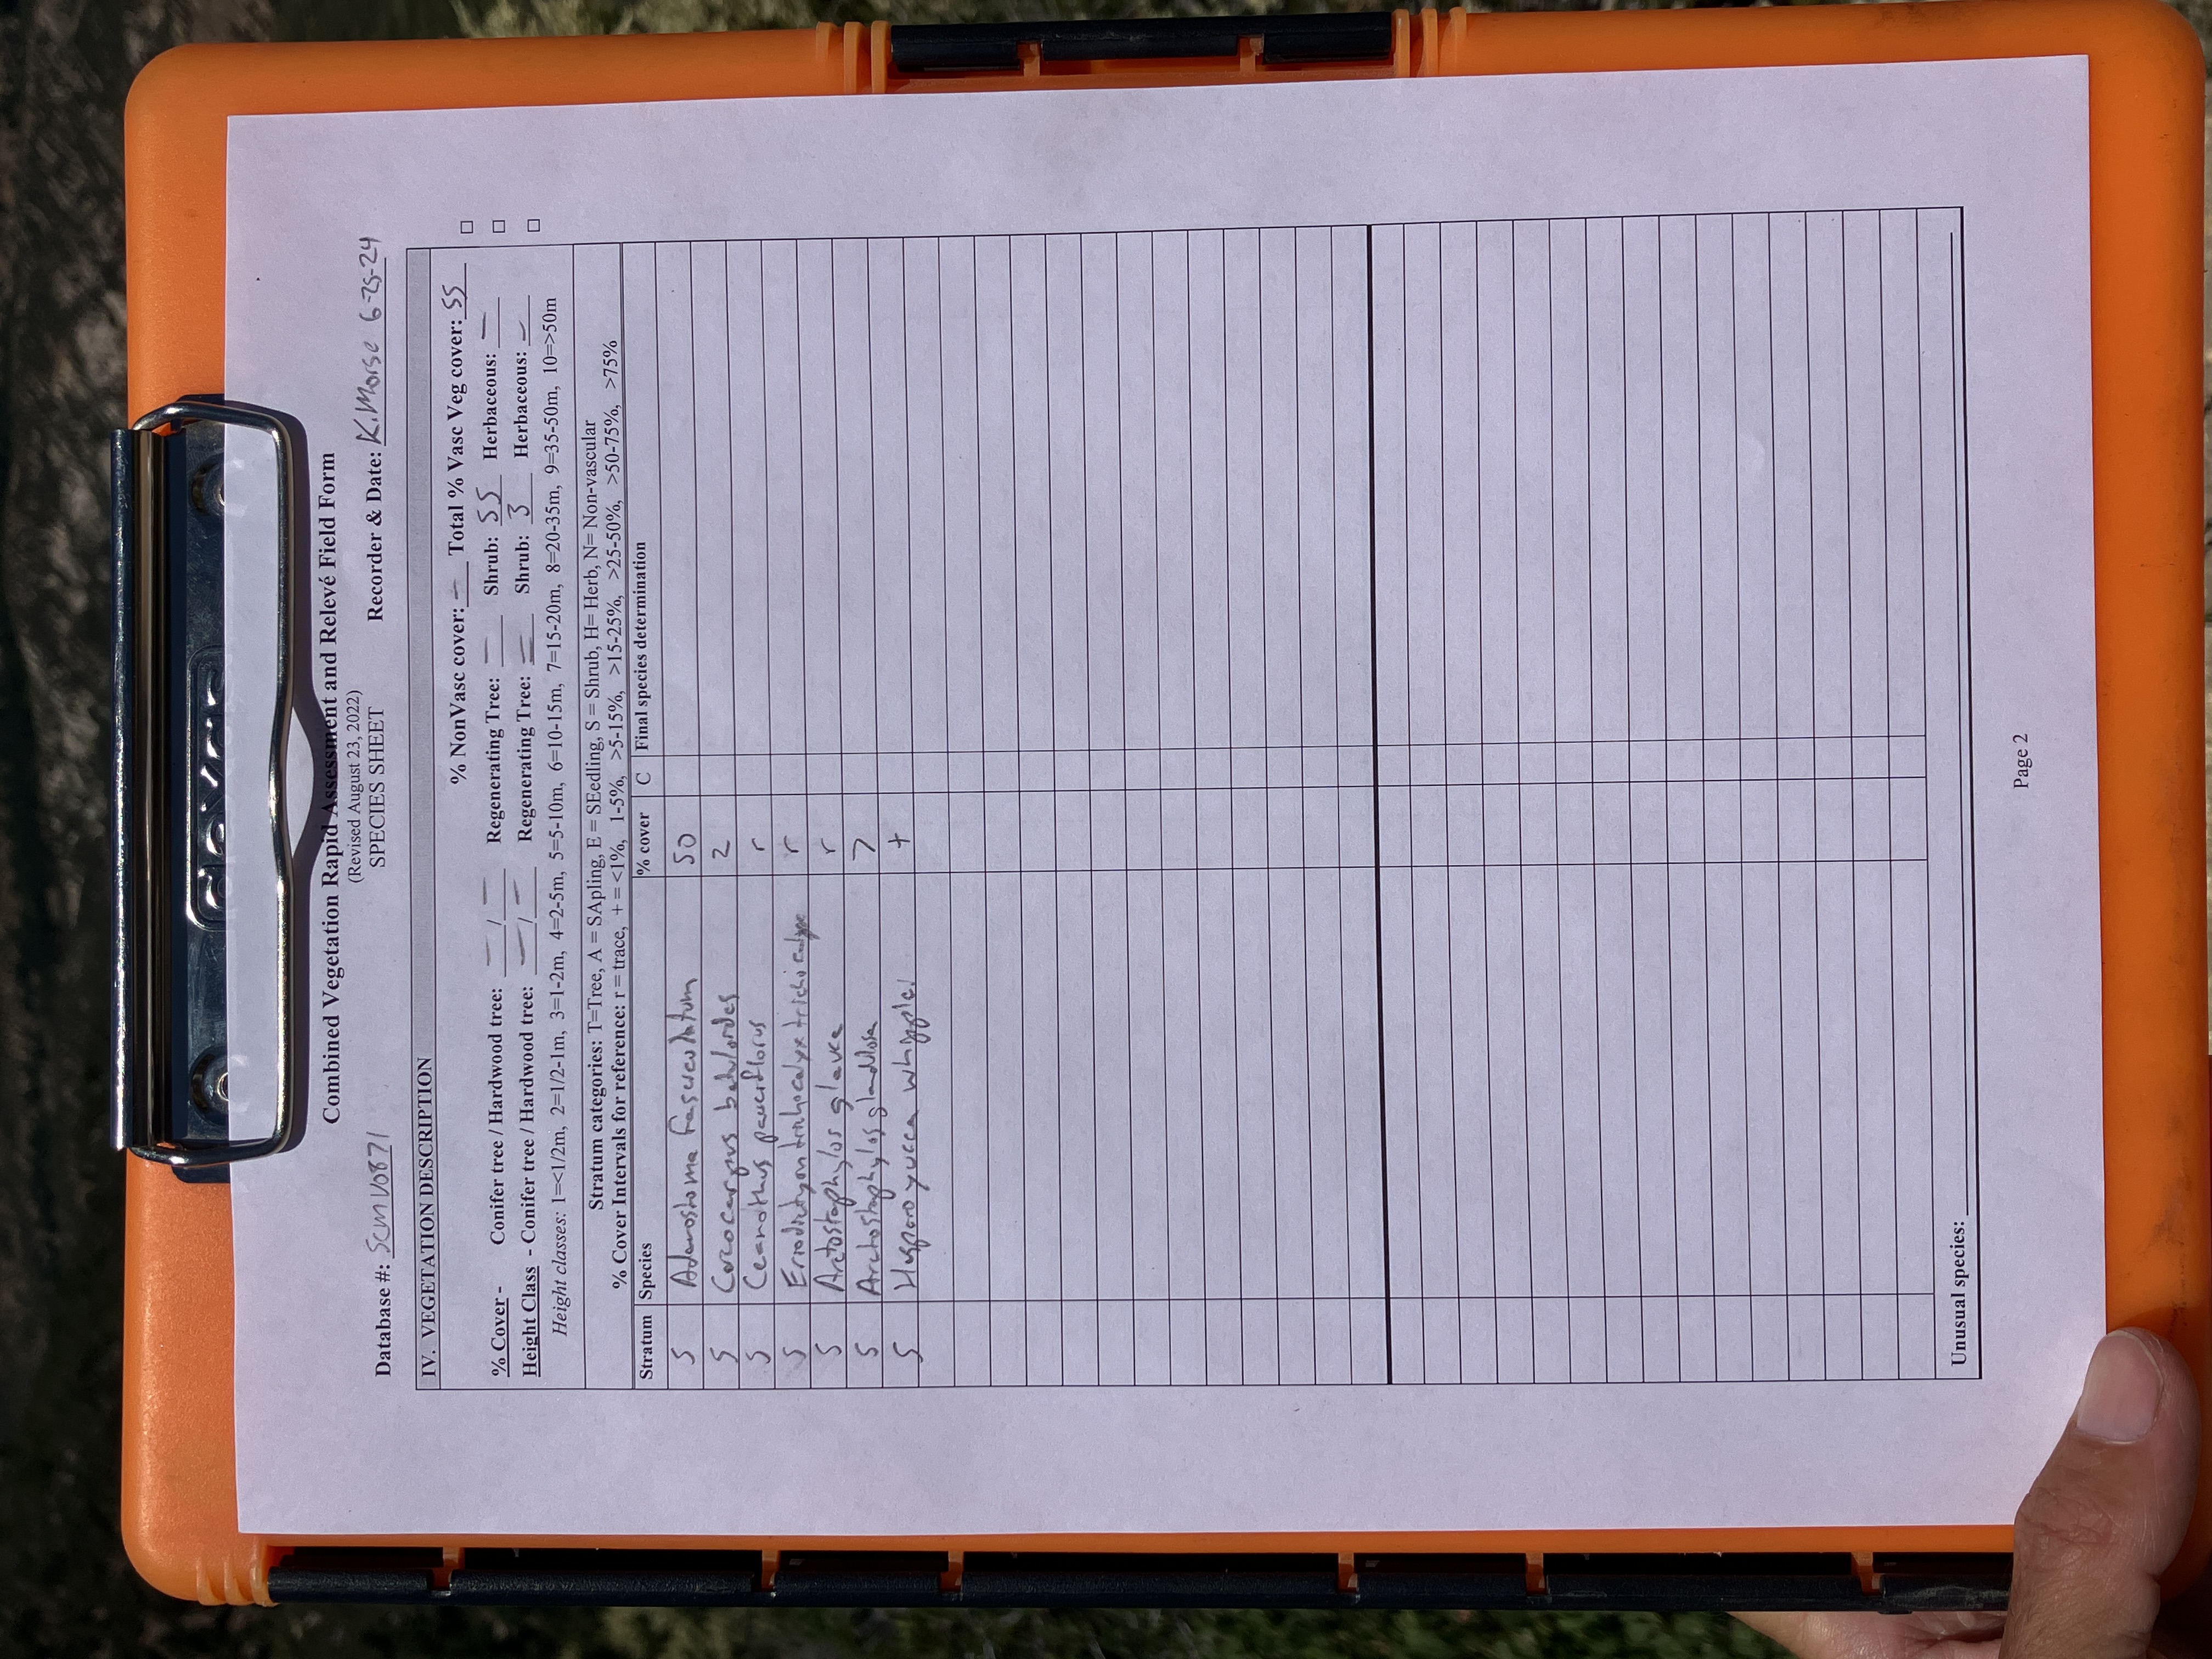 Combined Vegetation Rapid Assessment and Relevé Field Form
(Revised August 23, 2022)
SPECIES SHEET
Database #: SCMV0871 Recorder & Date: K.Morse 6-25-24
IV. VEGETATION DESCRIPTION
% NonVasc cover: – Total % Vasc Veg cover: 55 □
% Cover - Conifer tree / Hardwood tree: – / – Regenerating Tree: – Shrub: 55 Herbaceous: – □
Height Class - Conifer tree / Hardwood tree: – / – Regenerating Tree: – Shrub: 3 Herbaceous: – □
Height classes: 1=<1/2m, 2=1/2-1m, 3=1-2m, 4=2-5m, 5=5-10m, 6=10-15m, 7=15-20m, 8=20-35m, 9=35-50m, 10=>50m
Stratum categories: T=Tree, A = SApling, E = SEedling, S = Shrub, H= Herb, N= Non-vascular
% Cover Intervals for reference: r = trace, + = <1%, 1-5%, >5-15%, >15-25%, >25-50%, >50-75%, >75%
Stratum Species % cover C Final species determination
S Adenostoma fasciculatum 50
S Cercocarpus betuloides 2
S Ceanothus pauciflorus r
S Eriodictyon trichocalyx trichocalyx r
S Arctostaphylos glauca r
S Arctostaphylos glandulosa 7
S Hesperoyucca whipplei +
Unusual species:
Page 2